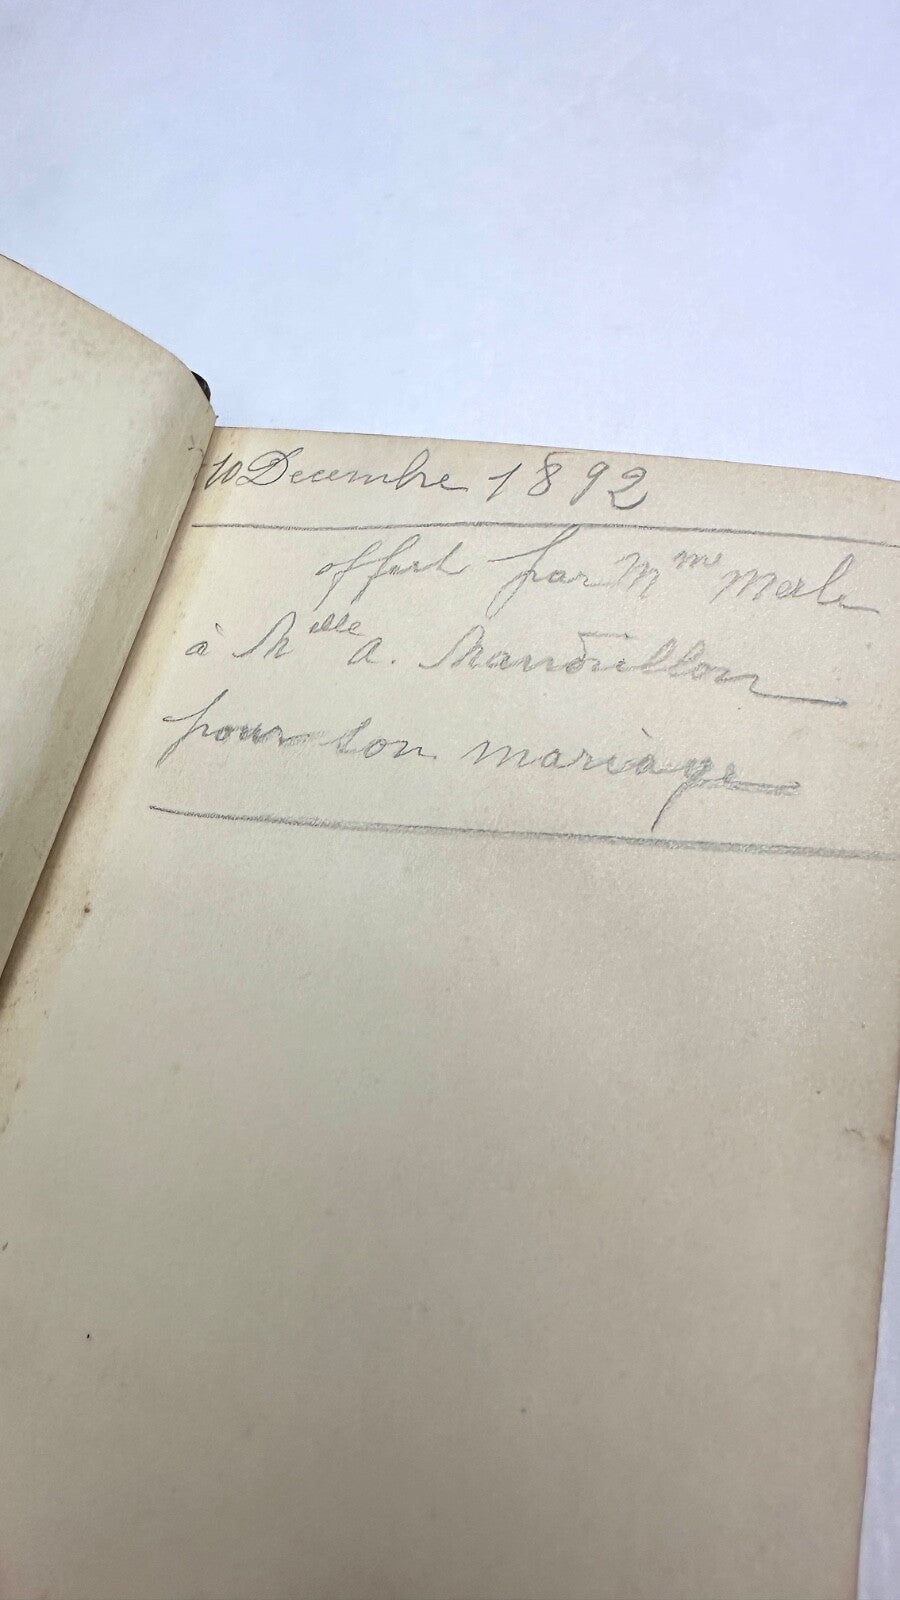 10 Decembre 1892
offert par Mme Merle
à Mlle A. Marrouillon
pour son mariage